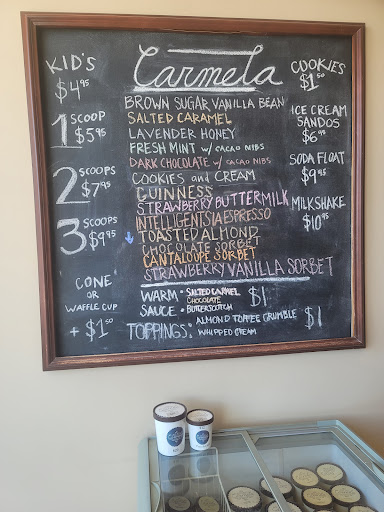 Carmela
KID'S
$4.95
1 SCOOP
$5.95
2 SCOOPS
$7.95
3 SCOOPS
$9.95
CONE
OR
WAFFLE CUP
+ $1.50
BROWN SUGAR VANILLA BEAN
SALTED CARAMEL
LAVENDER HONEY
FRESH MINT w/ CACAO NIBS
DARK CHOCOLATE w/ CACAO NIBS
COOKIES and CREAM
GUINNESS
STRAWBERRY BUTTERMILK
INTELLIGENTSIA ESPRESSO
TOASTED ALMOND
CHOCOLATE SORBET
CANTALOUPE SORBET
STRAWBERRY VANILLA SORBET
WARM SAUCE • SALTED CARAMEL $1
CHOCOLATE
• BUTTERSCOTCH
TOPPINGS: ALMOND TOFFEE CRUMBLE $1
WHIPPED CREAM
COOKIES
$1.50
ICE CREAM
SANDOS
$6
SODA FLOAT
$9.95
MILKSHAKE
$10.95